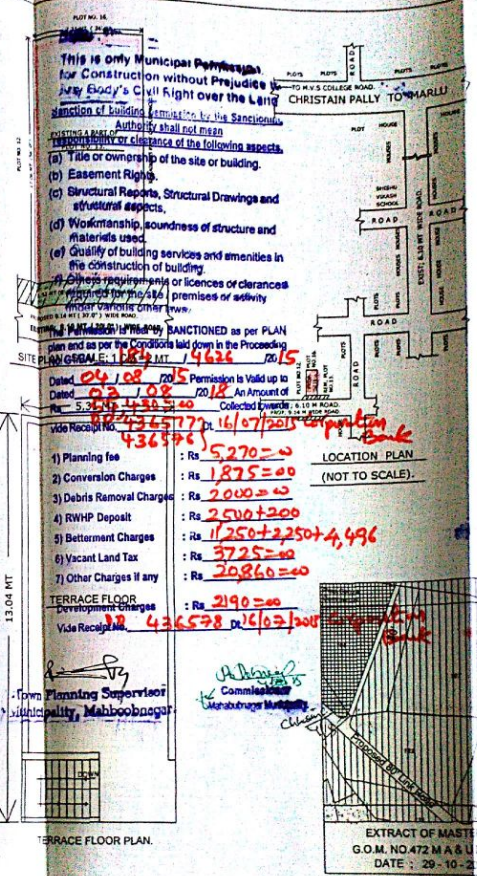 PLOT NO. 16,
This is only Municipal Permission
for Construction without Prejudice to
any Body's Civil Right over the Land
Sanction of building permission by the Sanctioning
Authority shall not mean
EXISTING A PART OF
responsibility or clearance of the following aspects.
(a) Title or ownership of the site or building.
(b) Easement Rights.
(c) Structural Reports, Structural Drawings and
structural aspects,
(d) Workmanship, soundness of structure and
materials used.
(e) Quality of building services and amenities in
the construction of building.
requirements or licences of clerances
required for the site / premises or activity
under various other laws.
Permission is hereby SANCTIONED as per PLAN
plan end as per the Conditions laid down in the Proceeding
SITE PLAN SCALE: 1 MT. 184 / 4626 /2015
Dated 04/08 /2015 Permission is Valid up to
Dated 03/08 /2018 An Amount of
Rs Collected towards
vide Receipt No. 436577 Dt. 16/07/2015 Corporation
436576 Bank
1) Planning fee : Rs 5,270=00
2) Conversion Charges : Rs 1,875=00
3) Debris Removal Charges : Rs 2000=00
4) RWHP Deposit : Rs 2500+200
5) Betterment Charges : Rs 11,250+2,250+4,496
6) Vacant Land Tax : Rs 3725=00
7) Other Charges if any : Rs 20,860=00
TERRACE FLOOR
Development Charges : Rs 2190=00
Vide Receipt No. 436578 Dt. 16/07/2015 Corporation
Bank
Town Planning Supervisor
Municipality, Mahboobnagar
Commissioner
Mahabubnagar Municipality
13.04 MT
DOWN
TERRACE FLOOR PLAN.
ROAD
PLOTS PLOTS PLOTS PLOTS
TO M.V.S COLLEGE ROAD.
CHRISTAIN PALLY TO MARLU
PLOT
HOUSE
HOUSES
SHISHU
VIKASH
SCHOOL
EXIST: 6.10 MT WIDE ROAD.
ROAD
ROAD
PLOTS
HOUSES
ROAD
PLOTS
ROAD
PLOT NO.12
6.10 M ROAD.
LOCATION PLAN
(NOT TO SCALE).
Proposed 80' Link Road
EXTRACT OF MASTE
G.O.M. NO.472 M A & U
DATE : 29-10-2